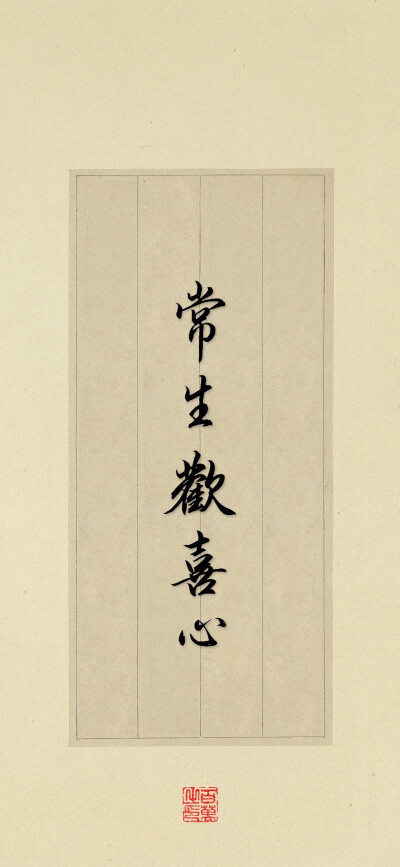 常生歡喜心